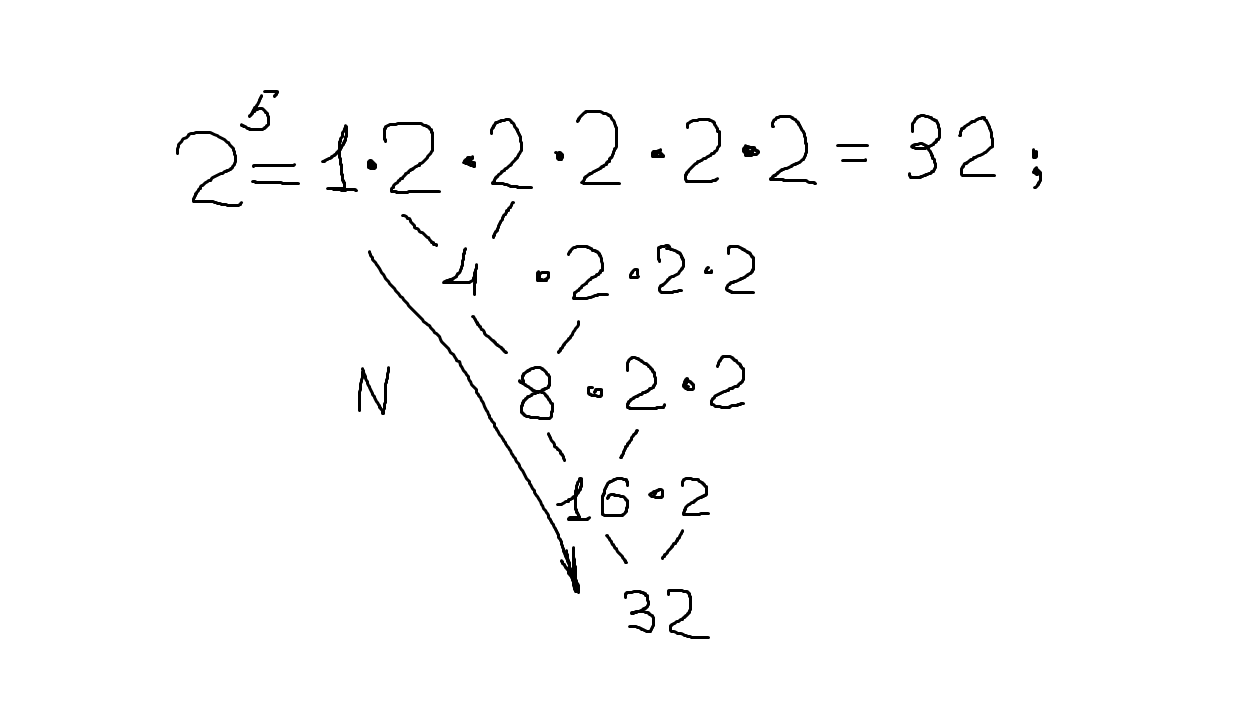 2⁵ = 1·2·2·2·2·2 = 32;
4 ·2·2·2
N 8·2·2
16·2
32